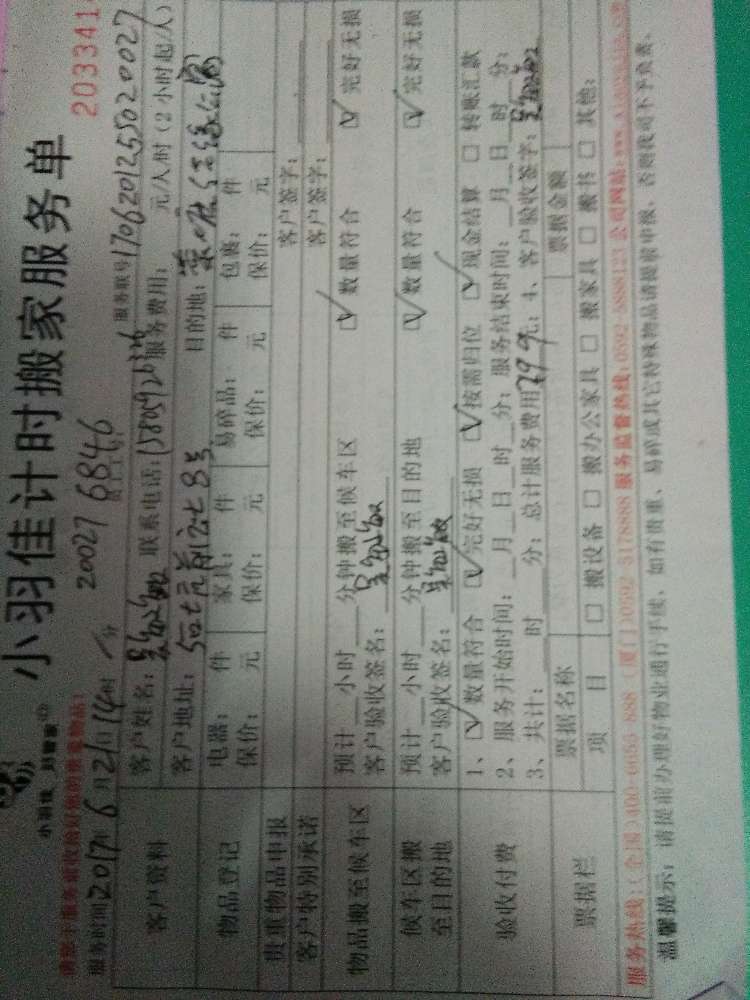 小羽佳计时搬家服务单
小羽佳 好管家
2033414
20027 6846
服务时间2017年6月21日14时 分
服务联号1706201255020027
客户资料
客户姓名: 联系电话:15809926326 服务费用: 元/人/时 (2小时起/人)
客户地址: 目的地:
物品登记
电器: 件 家具: 件 易碎品: 件 包裹: 件
保价: 元 保价: 元 保价: 元 保价: 元
贵重物品申报 客户签字:
客户特别承诺 客户签字:
物品搬至候车区
预计 小时 分钟搬至候车区 数量符合 完好无损
客户验收签名:
候车区搬至目的地
预计 小时 分钟搬至目的地 数量符合 完好无损
客户验收签名:
验收付费
1、 数量符合 完好无损 按需归位 现金结算 转账汇款
2、服务开始时间: 月 日 时 分; 服务结束时间: 月 日 时 分;
3、共计: 时 分; 总计服务费用 元; 4、客户验收签字:
票据栏
票据名称 票据金额
项 目 搬设备 搬办公家具 搬家具 搬书 其他:
服务热线:(全国)400-6655-888 (厦门)0592-5178888 服务监督热线:0592-5888123 公司网站:
温馨提示: 请提前办理好物业通行手续, 如有贵重、易碎或其它特殊物品请提前申报, 否则我司不予负责。